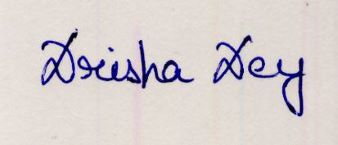 Drisha Dey